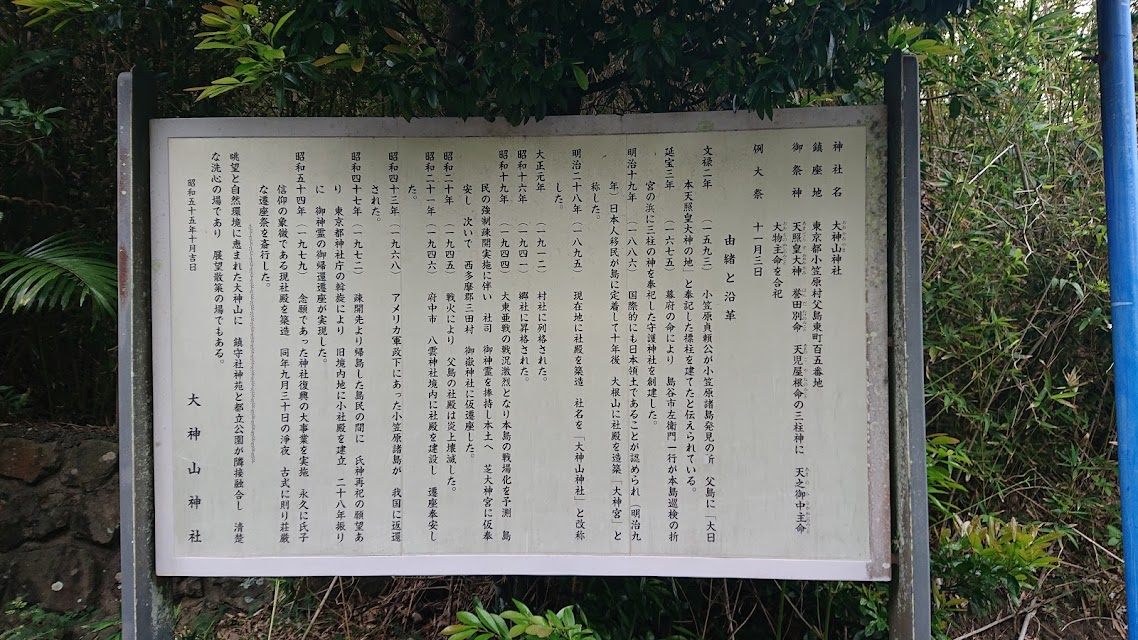 神社名 大神山神社
鎮座地 東京都小笠原村父島東町百五番地
御祭神 天照皇大神 誉田別命 天児屋根命の三柱神に 天之御中主命
大物主命を合祀
例大祭 十一月三日
由緒と沿革
文禄二年 (一五九三) 小笠原貞頼公が小笠原諸島発見の折 父島に「大日
本天照皇大神の地」と奉記した標柱を建てたと伝えられている。
延宝三年 (一六七五) 幕府の命により 島谷市左衛門一行が本島巡検の折
宮の浜に三柱の神を奉祀した守護神社を創建した。
明治十九年 (一八八六) 国際的にも日本領土であることが認められ(明治九
年)日本人移民が島に定着して十年後 大根山に社殿を造築「大神宮」と
称した。
明治二十八年(一八九五) 現在地に社殿を築造 社名を「大神山神社」と改称
した。
大正元年 (一九一二) 村社に列格された。
昭和十六年 (一九四一) 郷社に昇格された。
昭和十九年 (一九四四) 大東亜戦の戦況激烈となり本島の戦場化を予測 島
民の強制疎開実施に伴い 社司 御神霊を捧持し本土へ 芝大神宮に仮奉
安し 次いで 西多摩郡三田村 御嶽神社に仮遷座した。
昭和二十年 (一九四五) 戦火により 父島の社殿は炎上壊滅した。
昭和二十一年(一九四六) 府中市 八雲神社境内に社殿を建設し 遷座奉安し
た。
昭和四十三年(一九六八) アメリカ軍政下にあった小笠原諸島が 我国に返還
された。
昭和四十七年(一九七二) 疎開先より帰島した島民の間に 氏神再祀の願望あ
り 東京都神社庁の斡旋により 旧境内地に小社殿を建立 二十八年振り
に 御神霊の御帰還遷座が実現した。
昭和五十四年(一九七九) 念願であった神社復興の大事業を実施 永久に氏子
信仰の象徴である現社殿を築造 同年九月三十日の浄夜 古式に則り荘厳
な遷座祭を斎行した。
眺望と自然環境に恵まれた大神山に 鎮守社神苑と都立公園が隣接融合し 清楚
な洗心の場であり 展望散策の場でもある。
昭和五十五年十月吉日
大神山神社